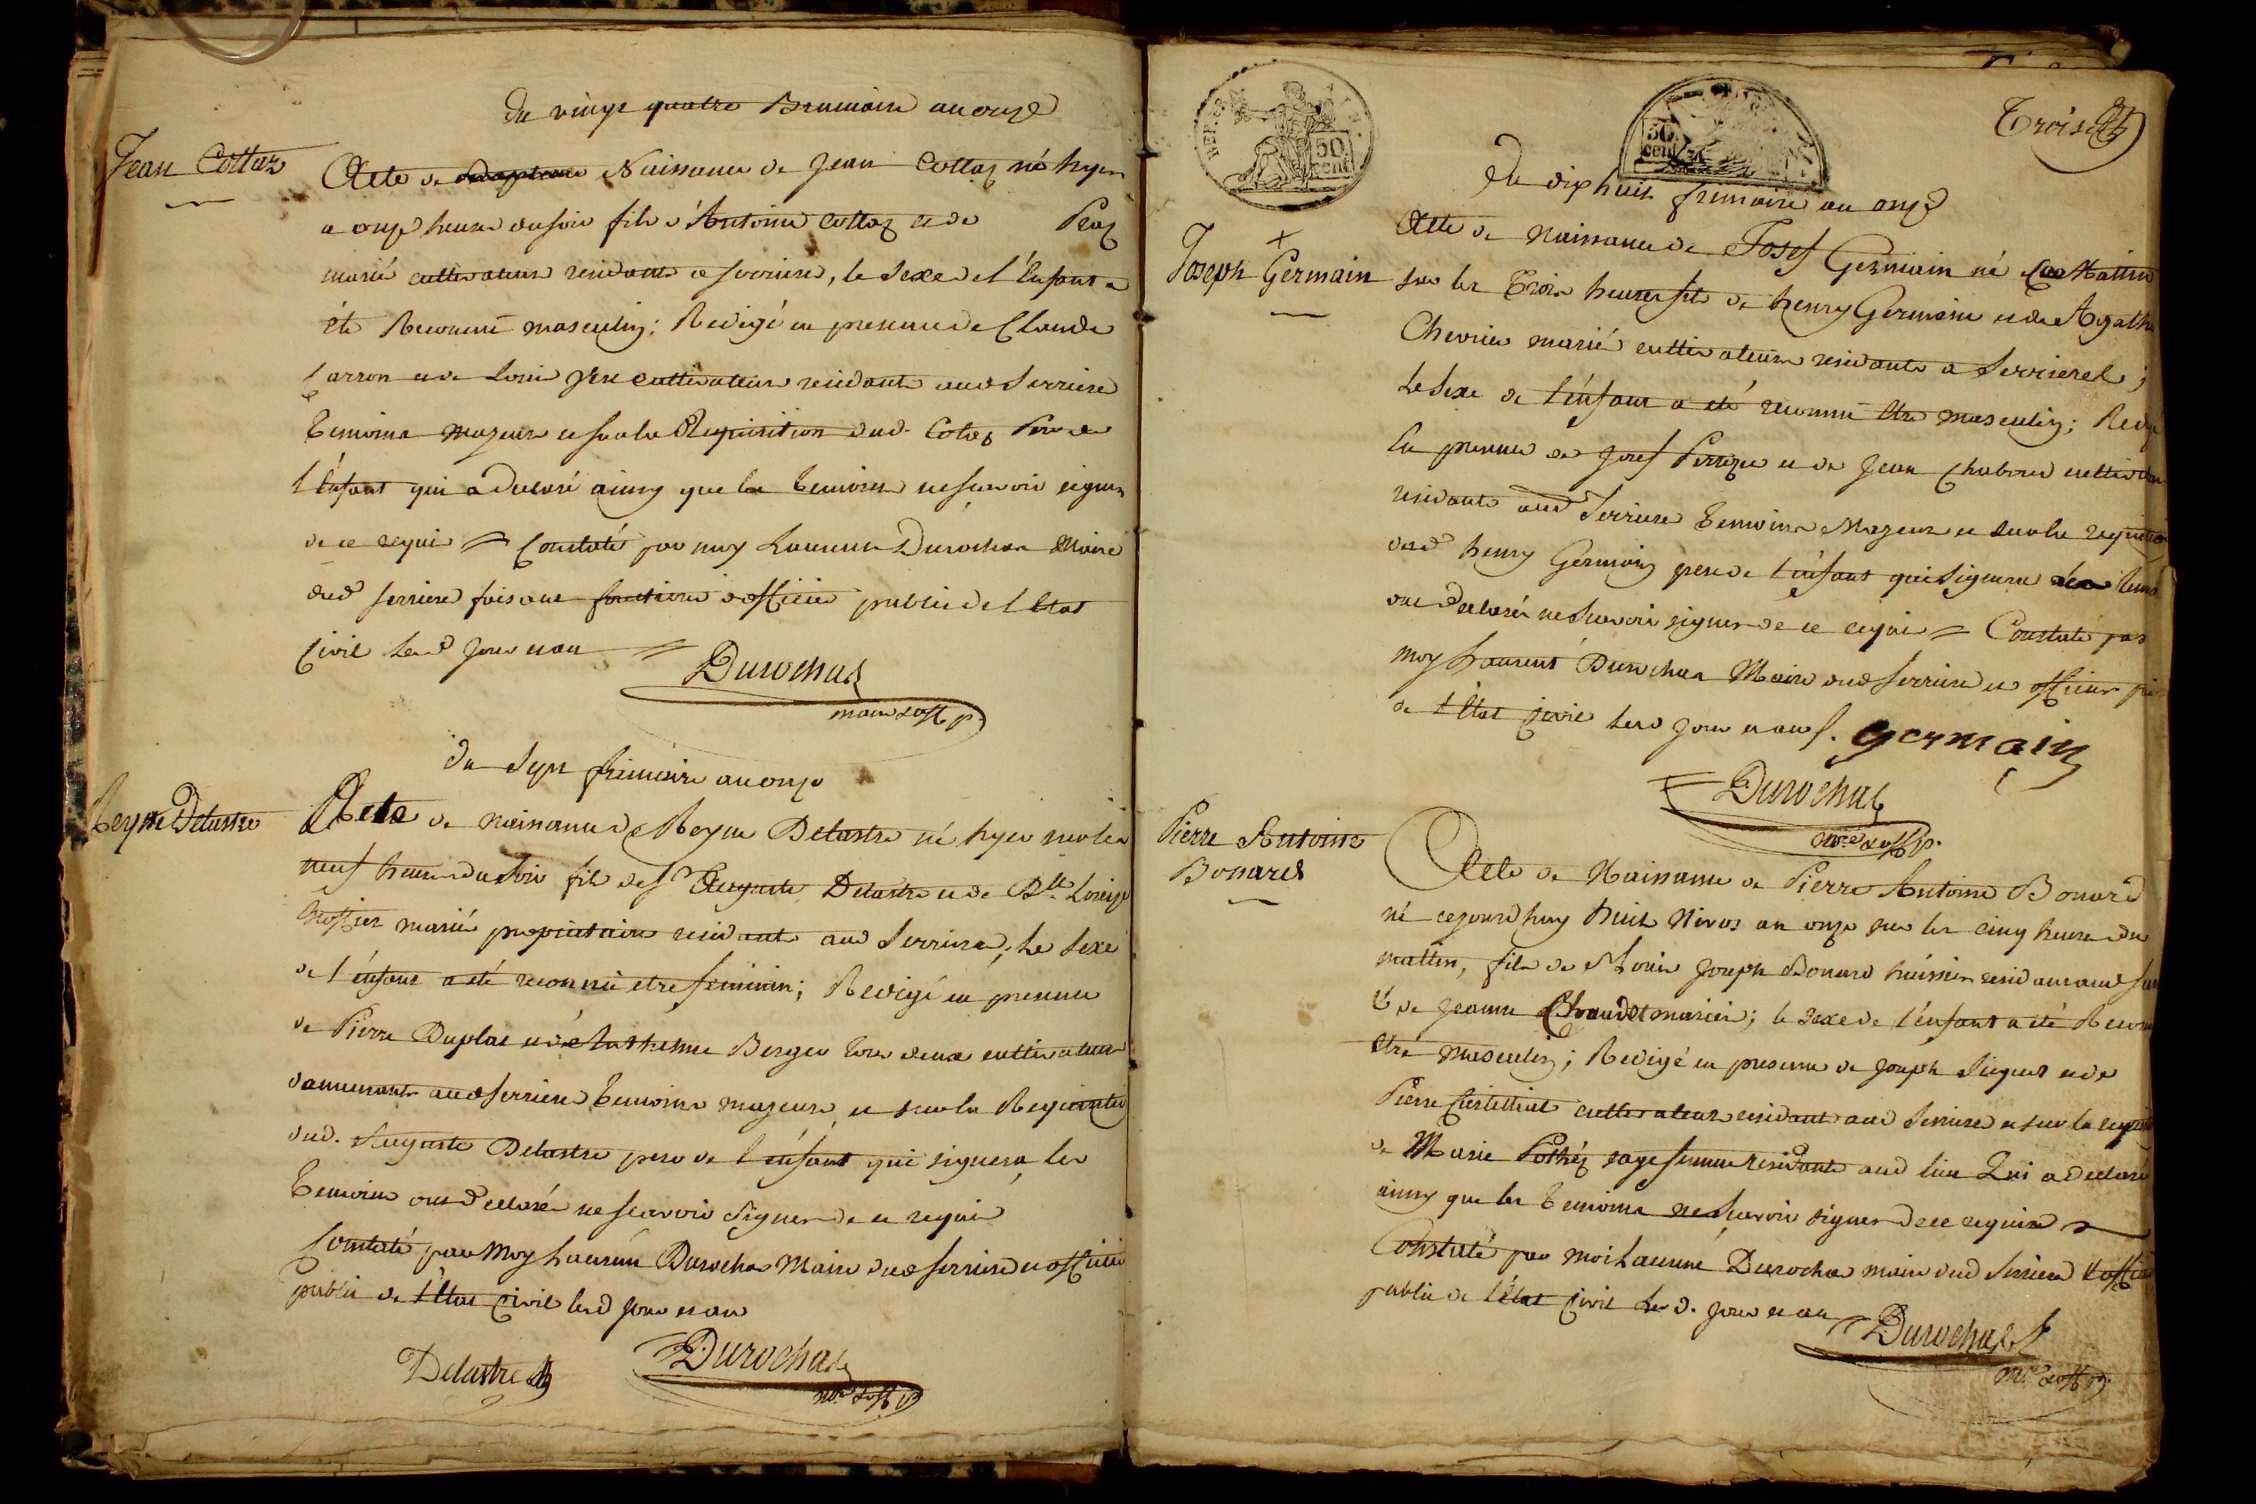 Du vingt quatre Brumaire an onze
Jean Cottaz
Acte de Naissance de Jean Cottaz né hyer
a onze heures du soir fils d'Antoine Cottaz et de Peaz
mariés cultivateurs residants a Serrieres, le Sexe de l'Enfant a
été Reconnû masculin; Redigé en presence de Claude
et de Louis cultivateurs residants aud Serriere
Temoins Majeurs et sur la Requisition dud. Cotaz Pere de
l'Enfant qui a declaré ainsy que les temoins ne scavoir signer
de ce requis = Constaté par moy Laurent Durochat Maire
dud Serriere faisant fonctions d'officier public de l'Etat
Civil led jour et an =
Durochat
maire et off p
Du Sept frimaire an onze
Reyne Delastre
Acte de naissance de Reyne Delastre né hyer sur les
neuf heures du Soir fils de Sr Auguste Delastre et de Dlle Louise
mariés propriétaires residants aud Serriere; Le Sexe
de l'enfant a été reconnû etre feminin; Redigé en presence
de Pierre Duplat et de Anthelme Berger tous deux cultivateurs
demeurants aud Serriere Temoins majeurs et sur la Requisition
dud. Auguste Delastre pere de l'enfant qui signera, les
Temoins ont declaré ne scavoir signer de ce requis
Constaté par Moy Laurent Durochat Maire dud Serriere et officier
public de l'Etat Civil led jour et an
Delastre
Durochat
mre et off p
30 cent
50 cent
REP. FR
Trois
Du dix huit frimaire an onze
Joseph Germain
Acte de naissance de Josef Germain né ce Mattin
sur les Trois heures fils de henry Germain et de Agathe
Chevrier mariés cultivateurs residants a Serrieres;
Le Sexe de l'enfant a été reconnû Etre masculin; Redigé
En presence de Josef et de Jean Chabord cultivateurs
residants aud Serriere Temoins Majeurs et sur la requisition
dud henry Germain pere de l'enfant qui signera les temoins
ont declarés ne scavoir signer de ce requis = Constaté par
moy Laurent Durochat Maire dud Serriere et officier p.
de l'Etat Civil led jour et an.
germain
Durochat
mre et off p.
Pierre Antoine
Bonard
Acte de Naissance de Pierre Antoine Bonard
né cejourd'huy huit Nivos an onze sur les cinq heures du
mattin, fils de Louis Joseph Bonard huissier residant aud Serriere
et de Jeanne mariés; le Sexe de l'enfant a été Reconnu
être masculin; Redigé en presence de Joseph et de
Pierre cultivateurs residant aud Serriere et sur la requisition
de Marie sage femme residante aud lieu Qui a declaré
ainsy que les Temoins ne scavoir signer de ce requise
Constaté par moi Laurent Durochat maire dud Serriere et officier
public de l'état Civil le d. jour et an
Durochat
mre et off p.